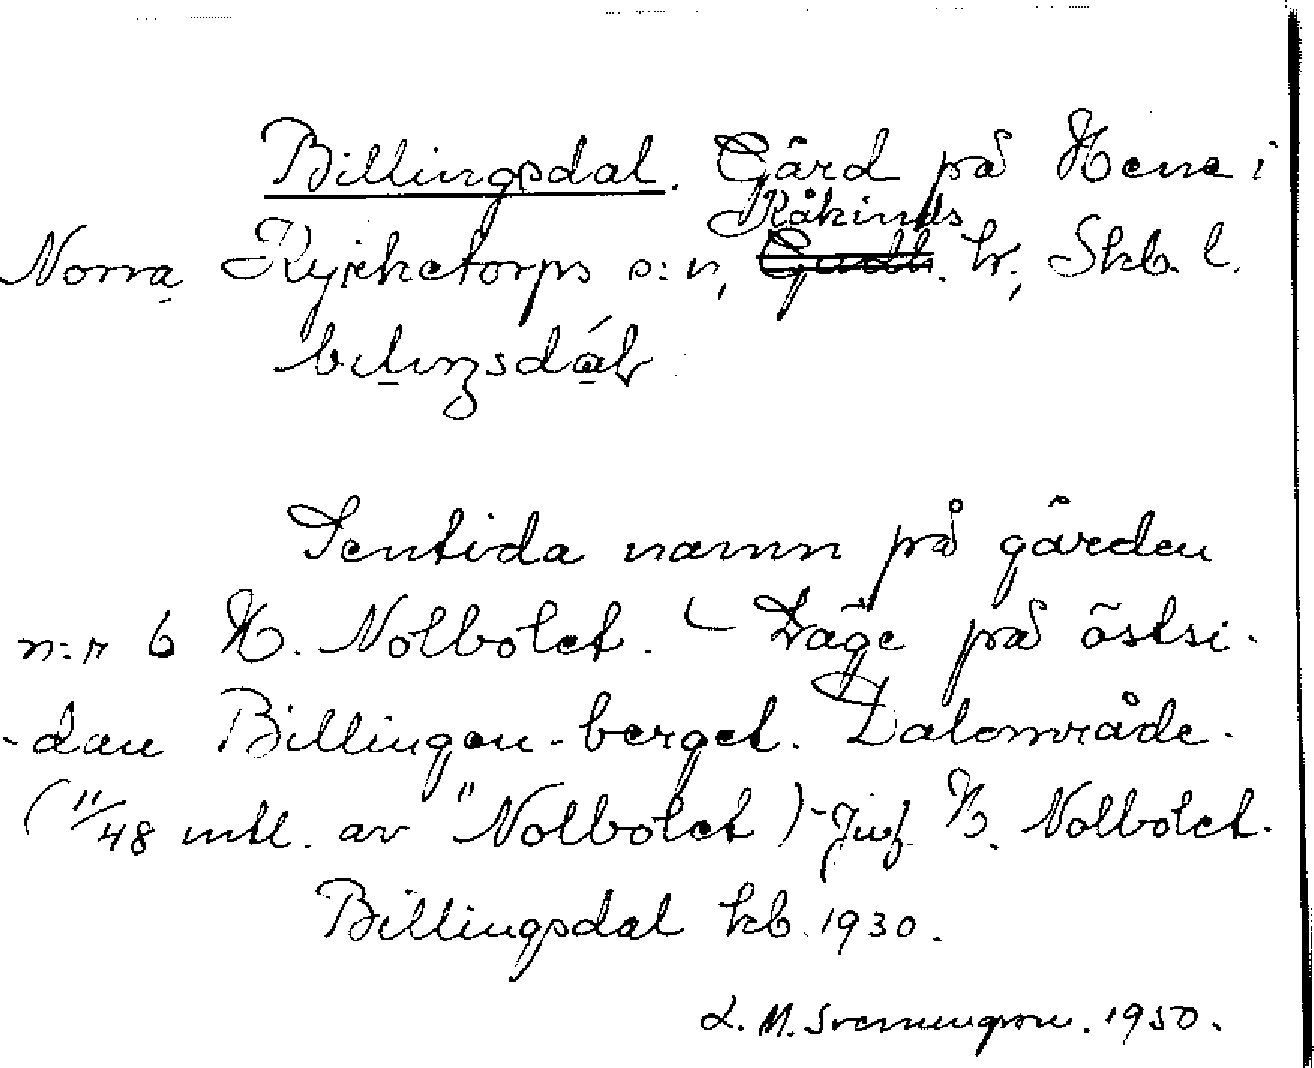 Billingsdal. Gård på Hene i
Kåkinds
Norra Kyrketorps s:n, Gudh. hr, Skb. l.
Sentida namn på gården
n:r 6 N. Nolbolet. – Läge på östsi-
-dan Billingen-berget. Dalområde.
(11/48 mtl. av "Nolbolet) – Jmf N. Nolbolet.
Billingsdal kb. 1930.
L. M. Svenungsson. 1950.